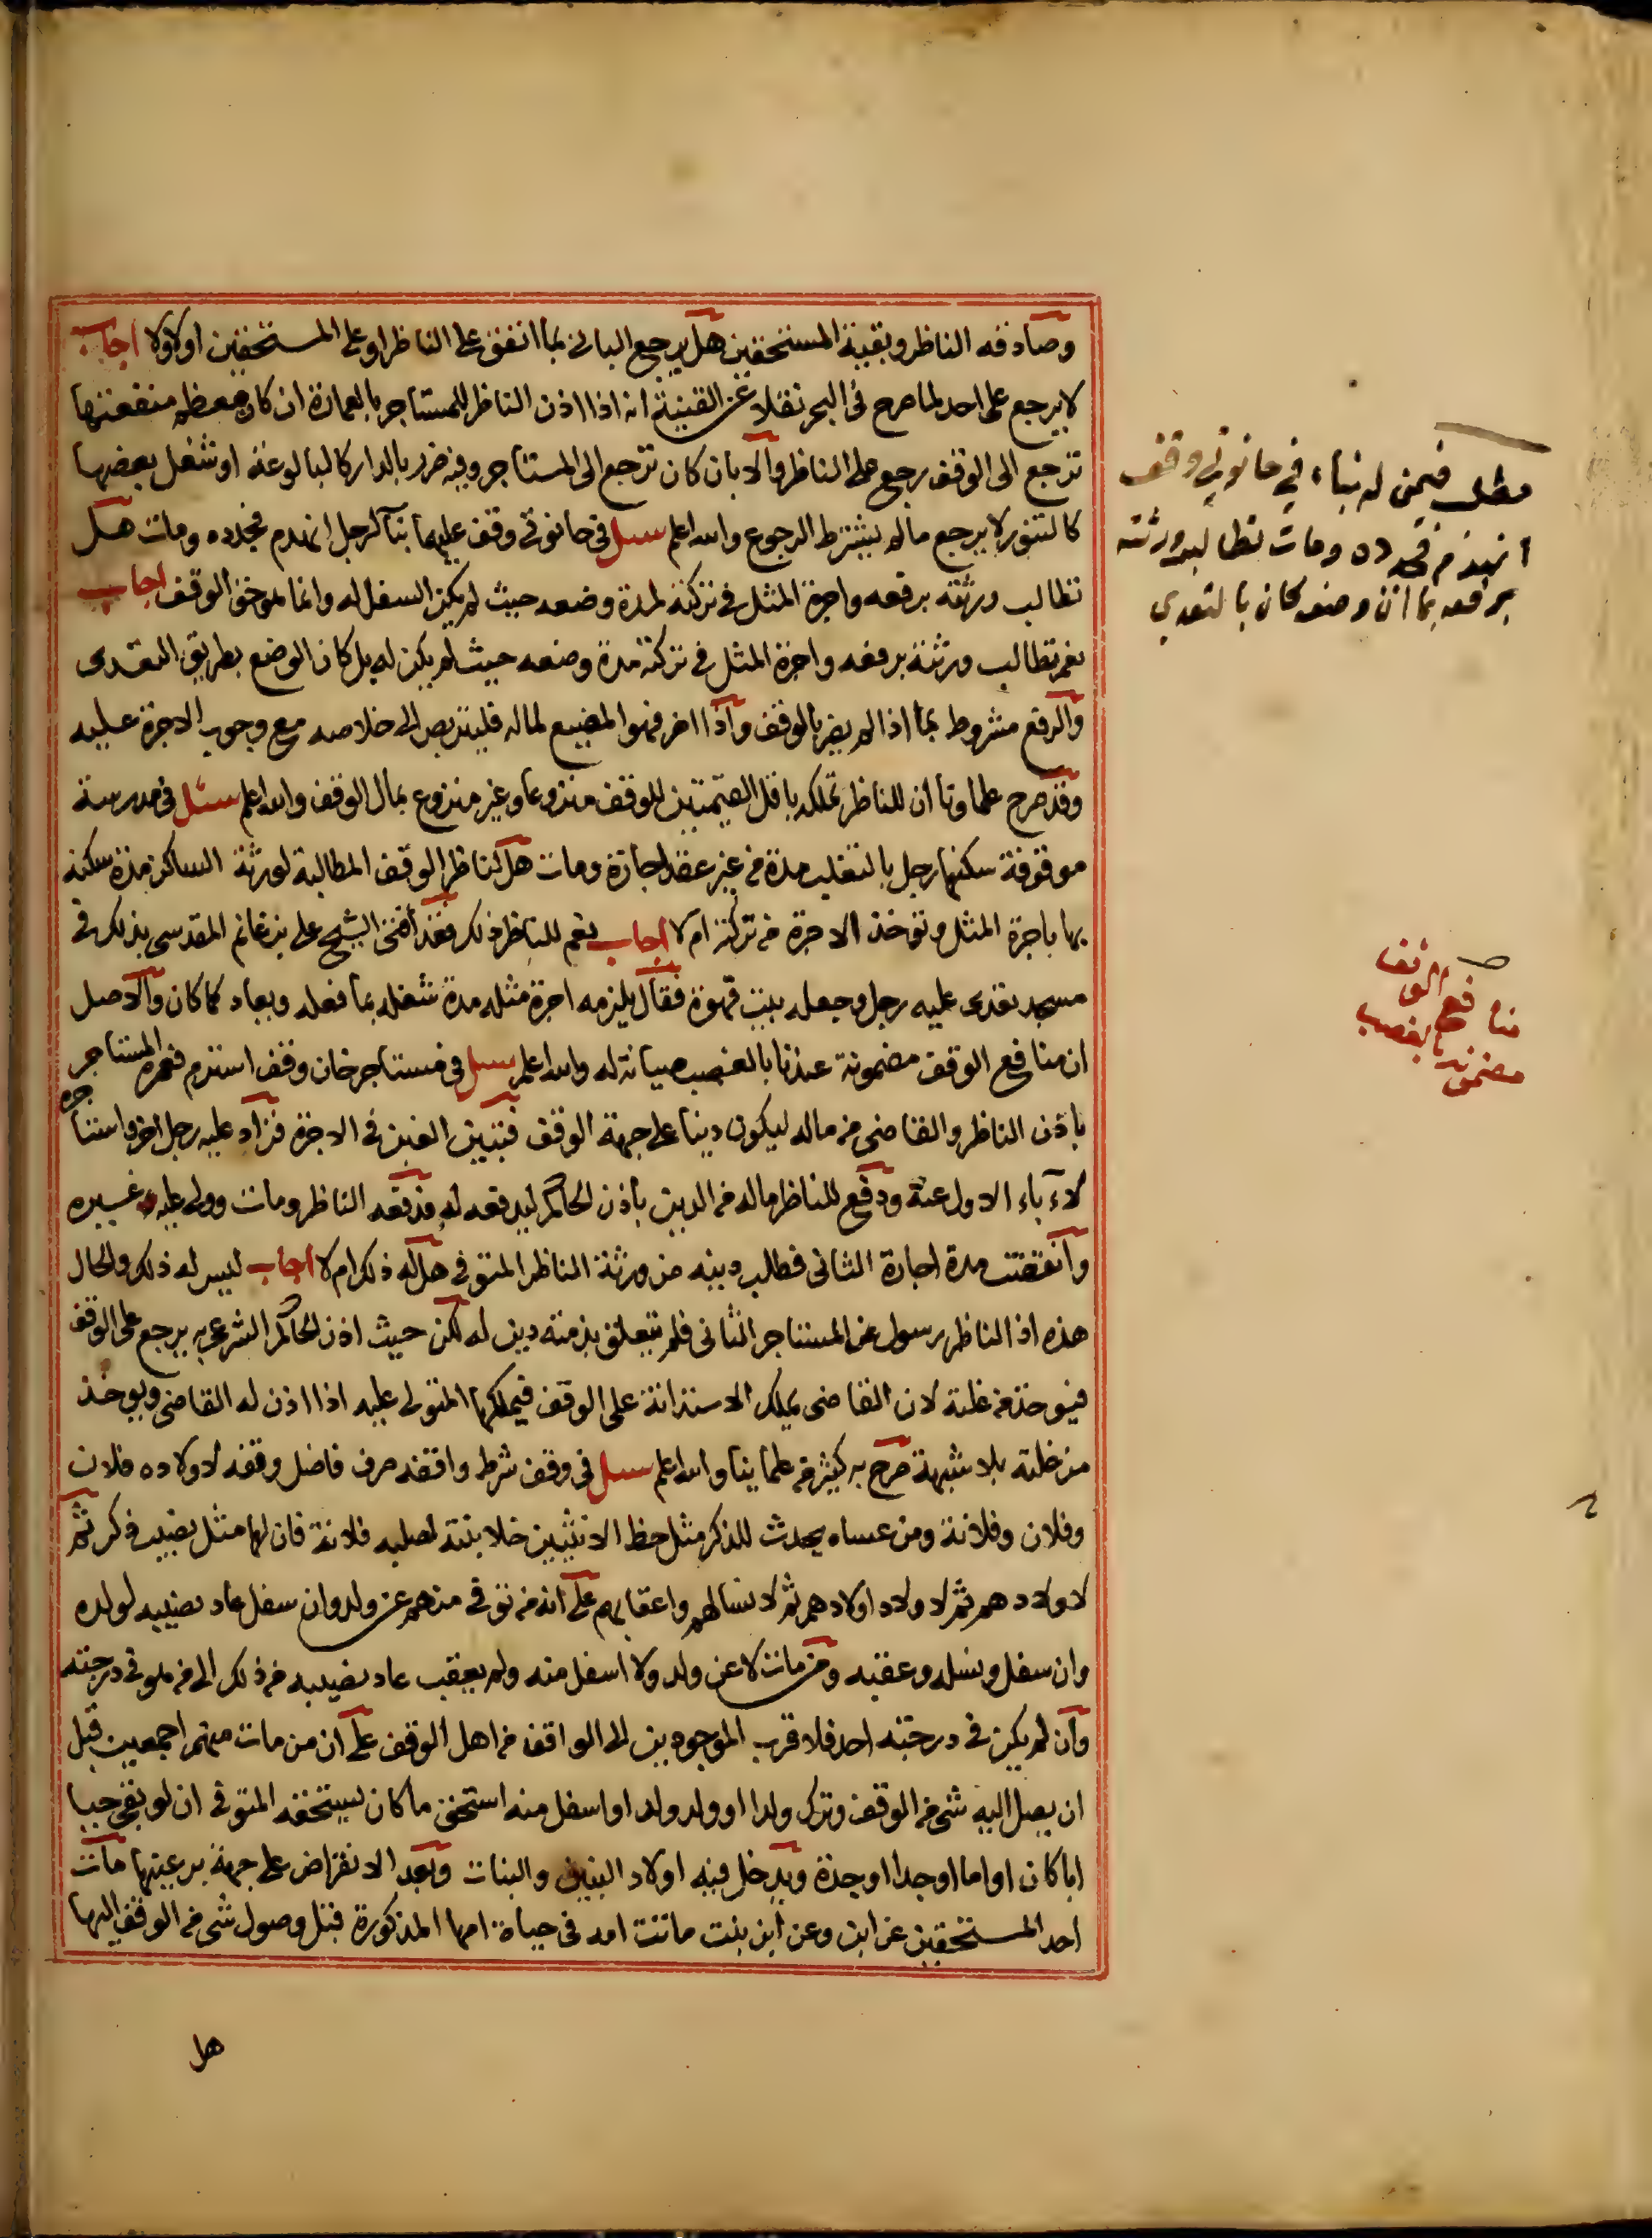 وصادفه الناظر وبقية المستحقين هل يرجع البانى بما انفق على الناظر او على المستحقين اولا ولا اجاب
لا يرجع على احد لما صرح فى البحر نقلا عن القنية انه اذا اذن الناظر للمستاجر بالعمارة ان كان معظم منفعتها
ترجع الى الوقف يرجع على الناظر والا بان كان ترجع الى المستاجر وفيه ضرر بالدار كالبالوعة او شغل بعضها
كالتنور لا يرجع ما لم يشترط الرجوع والله اعلم سىل فى حانوتى وقف عليهما بنآ لرجل انهدم فجدده ومات هل
تطالب ورثته برفعه واجرة المثل فى تركته لمدة وضعه حيث لم يكن السفل له وانما هو حق الوقف اجاب
نعم تطالب ورثته برفعه واجرة المثل فى تركته مدة وضعه حيث لم يكن له بل كان الوضع بطريق التعدى
والرفع مشروط بما اذا لم يضر بالوقف واذا اضر فهو المضيع لماله فليتربص الى خلاصه مع وجوب الاجرة عليه
وقد صرح علماونا ان للناظر تملكه باقل القيمتين للوقف منزوعا وغير منزوع بمال الوقف والله اعلم سئل فى مدرسة
موقوفة سكنها رجل بالتغلب مدة من غير عقد اجارة ومات هل لناظر الوقف المطالبة لورثة الساكن مدة سكنه
بها باجرة المثل وتوخذ الاجرة من تركته ام لا اجاب نعم للناظر ذلك فقد أفتى الشيخ على بن غانم المقدسى بذلك فى
مسجد تعدى عليه رجل وجعله بيت قهوة فقال يلزمه اجرة مثله مدة شغله بما فعله ويعاد كما كان والاصل
ان منافع الوقف مضمونة عندنا بالغصب صيانة له والله اعلم سىل فى مستاجر خان وقف استرم فعمره المستاجر
باذن الناظر والقاضى من ماله ليكون دينا على جهة الوقف فتبين الغبن فى الاجرة فزاد عليه رجل اخر واستاجره
لآباء الاول عنه ودفع للناظر ماله من الدين باذن الحاكم ليدفعه له فدفعه الناظر ومات وولى عليه غيره
وانقضت مدة اجارة الثانى فطلب دينه من ورثة الناظر المتوفى هل له ذلك ام لا اجاب ليس له ذلك والحال
هذه اذ الناظر رسول عن المستاجر الثانى فلم يتعلق بذمته دين له لكن حيث اذن الحاكم الشرعى به يرجع على الوقف
فيوخذ من غلته لان القاضى يملك الاستدانة على الوقف فيملكها المتولى عليه اذا اذن له القاضى ويوخذ
من غلته بلا شبهة صرح به كثير من علماينا والله اعلم سىل فى وقف شرط واقفه صرف فاضل وقفه لاولاده فلان
وفلان وفلانة ومن عساه يحدث للذكر مثل حظ الانثيين خلا بنته لصلبه فلانة فان لها مثل نصيب ذكر ثم
لاولادهم ثم لاولاد اولادهم ثم لانسالهم واعقابهم على انه من توفى منهم عن ولد وان سفل عاد نصيبه لولده
وان سفل ونسله وعقبه ومن مات لا عن ولد ولا اسفل منه ولم يعقب عاد نصيبه من ذلك الى من هو فى درجته
وان لم يكن فى درجته احد فلاقرب الموجودين الى الواقف من اهل الوقف على ان من مات منهم اجمعين قبل
ان يصل اليه شى من الوقف وترك ولدا او ولد ولد او اسفل منه استحق ما كان يستحقه المتوفى ان لو بقى حيا
ابا كان او اما او جدا او جدة ويدخل فيه اولاد البنين والبنات وبعد الانقراض على جهة بر عينها مات
احد المستحقين عن ابن وعن ابن بنت ماتت امه فى حياة امها المذكورة قبل وصول شى من الوقف اليها
هل
مطلب فيمن له بناء في حانوتي وقف
انهدم فجدده ومات تطالب ورثته
برفعه بما ان وضعه كان بالتعدي
منافع الوقف
مضمونة بالغصب